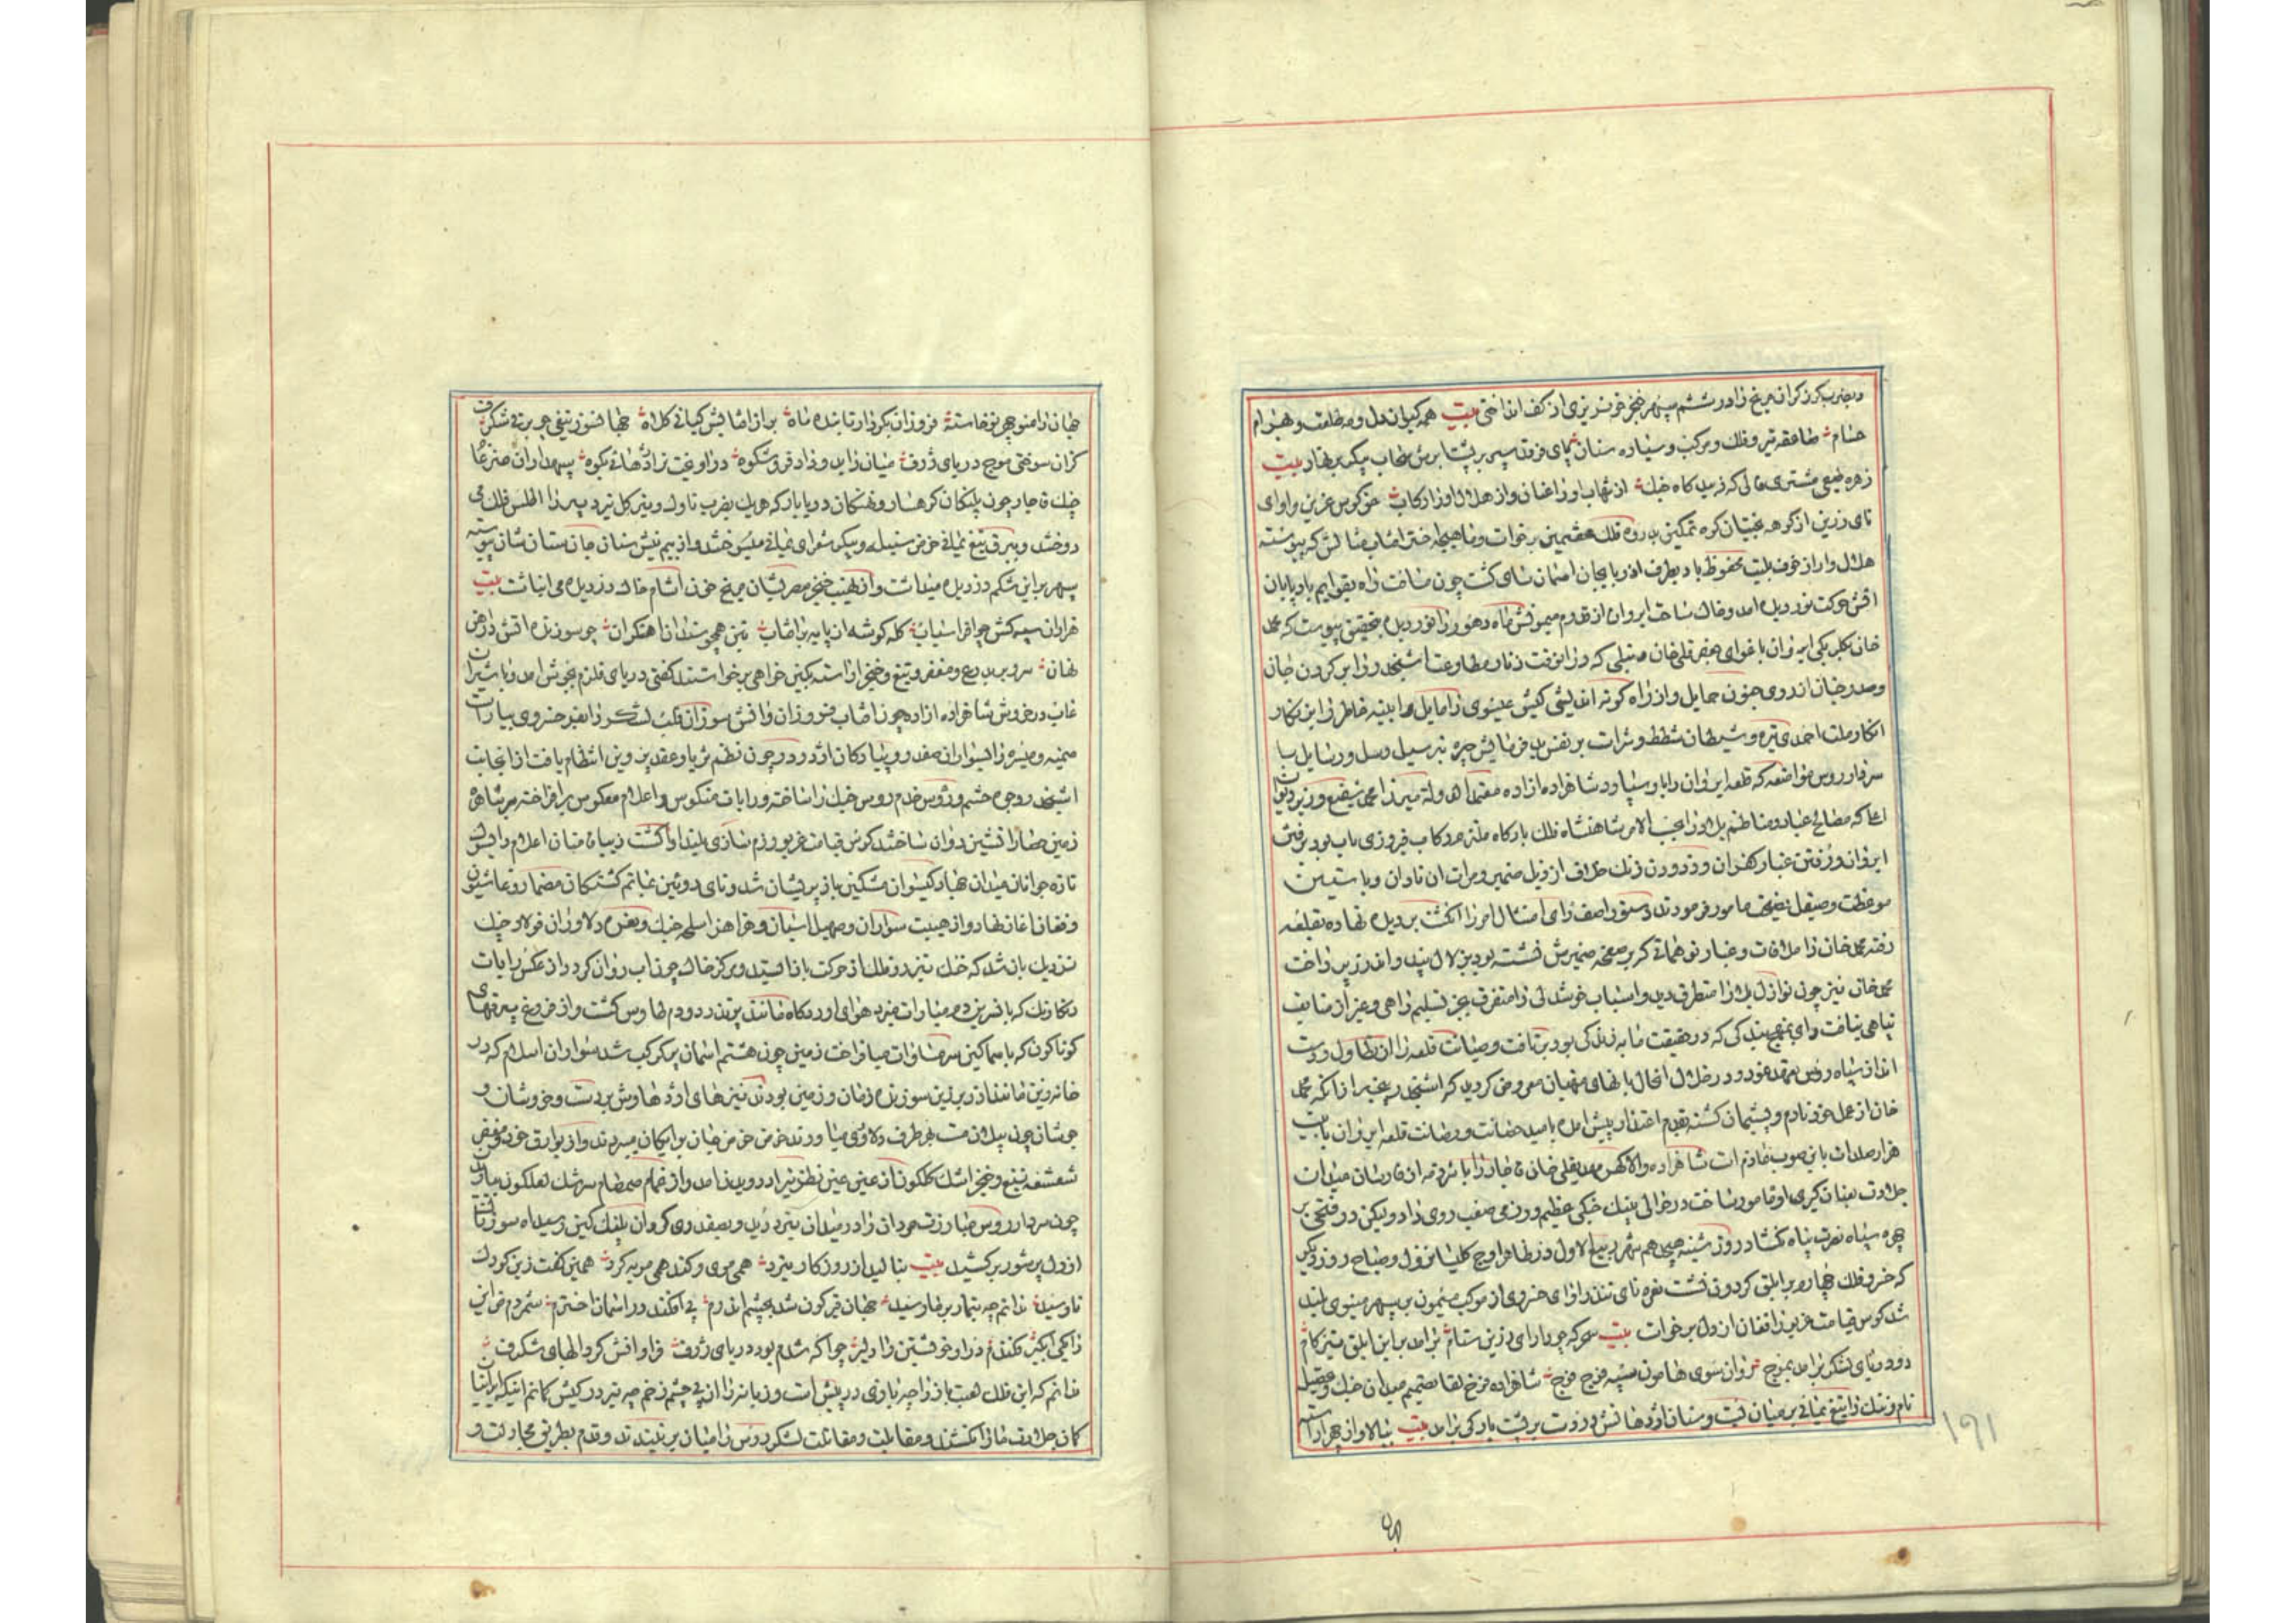 وبضرب کرز کران مریخ را در ششم سپهر خنجر خونریزی از کف انداختی بیت همه کیوان دل و مه طلعت و بهرام
حسام طاقفه تیر و فلک و مرکب و سیاره سنان پای فرقد سپر بر پشت ابرش سحاب پیکر بنهاد بیت
زهره طبعی مشتری فالی که زیبد کاه جنک از شهاب اورا عنان و از هلال اورا رکاب کوس غرین و اوای
نای زرین از کوهه بختیان کوه تمکین بذروه فلک هشتمین برخواست و ماهیچه اختر افتاب مثالش که پیوسته
هلال وار از خوف بلیت محفوظ باد بطرف اذربایجان اسمان سای کشت چون مسافت راه بقوایم باد پایان
اتش حرکت نوردیده امد و خاک ساحت ایروان از قدوم میمونش ماه دهور را نور دیده بتحقیق پیوست که محمد
خان بیکلربیکی ایروان باغوای جعفر قلی خان دنبلی که در انوقت زنار مطاوعت اشپخدر را بر کردن جان
وصدر خیان از روی جنون حمایل و از راه کوته اندیشی کیش عیسوی را مایل و ابنیه خاطر را این نکار
انکار ملت احمدی تیره و شیطان شطط و شرات بر نفس بد فرمایش چیره بترسیل رسل و رسایل با
سردار روس مواضعه که قلعه ایروان را باو سپارد شاهزاده ازاده معتمد الدوله میرزا محمد شفیع وزیر دیوان
اعلا که مصالح عباد و مناظم بلاد را بحسب الامر شاهنشاه فلک بارکاه ملتزم رکاب فیروزی باب بود برفتن
ایروان و رفتن غبار کفران و زدودن زنک خلاف از ذیل ضمیر و مرات ان نادان و با ستین
موعظت و صیقل نصیحت مامور فرمودند دستور اصف رای امتثال امر را انکشت بر دیده نهاده بقلعه
رفته محمد خان را ملاقات و غبار توهماتی که بر صفحه ضمیرش نشسته بود بزلال پند و اندرز پرداخت
محمد خان نیز چون نوازل بلا را متطرق دید و اسباب خوشدلی را متفرق بجز تسلیم راهی و غیر از مضایف
پناهی نیافت و رای بنهج بندکی که در حقیقت مایه زندکی بود بر تافت و صیانت قلعه را از تطاول و دست
انداز سپاه روس تعهد نمود و در خلال انحال بانهای منهیان معروض کردید که اشپخدر بیخبر از انکه محمد
خان از عمل خود نادم و پشیمان کشته بقدم اعتذار پیش امده بامید حضانت و رصانت قلعه ایروان با بیست
هزار صلدات باین صوب عازم است شاهزاده والا کهر مهدیقلی خان قاجار را با شرذمه از فارسان میدان
جلادت بعنان کیری او مامور ساخت در حوالی پنبک جنکی عظیم و رزمی صعب روی داد و لیکن در فتحی بر
چهره سپاه نصرت پناه نکشاد روز شنبه هیجدهم شهر ربیع الاول در ظاهر اوج کلیسا نزول و صباح روز دیکر
که خسرو فلک چهارم بر ابلق کردون نشست نعره نای تندر اوای خسروی از موکب میمون بر سپهر مینوی بلند
شد کوس قیامت غرین را افغان از دل برخواست بیت سحرکه چو دارای زرین ستام برامد براین ابلق تیزکام
دو دریای لشکر برامد بموج روان سوی هامون سپه فوج فوج شاهزاده فرخ لقا بتصمیم میدان جنک و تحصیل
نام و ننک را تیغ یمانی بر میان بست و سنان اژدها فش در دست بر پشت بارکی برامد بیت ببالا و از چهر اراسته
۱۶۱
جهان را منوچهر نو خاسته فروزان بکردار تابنده ماه براز افتابش کیانی کلاه جهانسوز تیغی چو برقی شکرف
کزان سوختی موج دریای ژرف میان زاید و زاد فر و شکوه دراویخت ز اژدهائی بکوه سپهداران ضرغام
جنک قاجار چون پلنکان کهسار و نهنکان دریا بار که هریک بضرب ناوک و تیر کل ترد پرند اطلس فلک می
دوختند و ببرق تیغ یمانی خرمن سنبله و پیکر شعرای یمانی میسوختند و از بیم نیش سنان جان ستان شان پیوسته
سپهر بر این شکم دزدیده میداشت و از نهیب خنجر مصریشان مریخ خون اشام خاک دزدیده می انباشت بیت
هزاران سپه کش چو افراسیاب کله کوشه از پایه بر افتاب بتن همچو سندان اهنکران چو سوزنده اتش در اهن
نهان سروبر بدرع و مغفر و تیغ و خنجر اراسته بکین خواهی برخواستند کفتی دریای قلزم بجوش امد و یا شیران
غاب در خروش شاهزاده ازاده چون افتاب فروزان و اتش سوزان قلب لشکر را بفر خسروی بیاراست
میمنه و میسره از سواران صفدر و پیادکان اژدر در چون نظم ثریا و عقد پروین انتظام یافت از انجانب
اشپخدر روحی حشم و رؤس خدم روس جنک را ساخته و رایات منکوس و اعلام معکوس برافراخته مریشاهه
زمین حصارا تشین دوان ساختند کوس قیامت غریو رزم سازی بلند اوا کشت و سیاه فتان اعلام دلیکش
تازه جوانان میدان بهار کیسوان مشکین باز پریشان شد و نای روئین غیاتم کشتکان مضمار وغا شیون
و فغان اغاز نهاد و از هیبت سواران و صهیل اسپان و هزاهز اسلحه جنک و نعره دلاوران فولاد چنک
نزدیک بان شد که خنک تیز رو فلک از حرکت باز ایستد و مرکز خاک چون اب روان کردد از عکس رایات
رنکارنک که با نسرین دم مبارات میزد هوای اوردکاه مانند پر تذرو و دم طاوس کشت و از فروغ بیرقهای
کوناکون که با سماکین سر مساوات میافراخت زمین چون هشتم اسمان پر کوکب شد سواران اسلام که در
خانه زین مانند اذر برزین سوزنده زمان و زمین بودند نیزه های اژدهاوش بردست و خروشان و
جوشان چون پیلان مست بهر طرف دلاوری میاورند خرمن خرمن جان برایکان میبردند و از بوارق خود و مغفر
شعشعه تیغ و خنجر اشک کلکون از عین عین نظر نیزار دویدن امد و از غمام صمصام سرشک لعلکون باران
چون سردار روس مبارزت مردان را در میدان نبرد دید و بصفدری کردان پلنک کین و سپاه سوزنان
از دل پر شور برکشید بیت بنالید از روزکار نبرد همی موی و کند همی مویه کرد همی کفت زین کودک
نارسید ندانم چه تیمار بر ما رسید جهان قیرکون شد بچشم اندرم پی افکند در اسمان اخترم شمردم من این
راکی ابکیر فکندم در او خویشتن را دلیر چو اکه شدم بود دریای ژرف فراوانش کردابهای شکرف
ندانم که این فلک لعبت باز را چه بازی در پیش است و زمانه را از پی چشم زخم چه تیر در کیش کمانم اینکه ایرانیان
کمان جلادت ما را نکشند و مقابلت و مقاتلت لشکر روس را میان بر نبندند و قدم بطریق مجادلت و